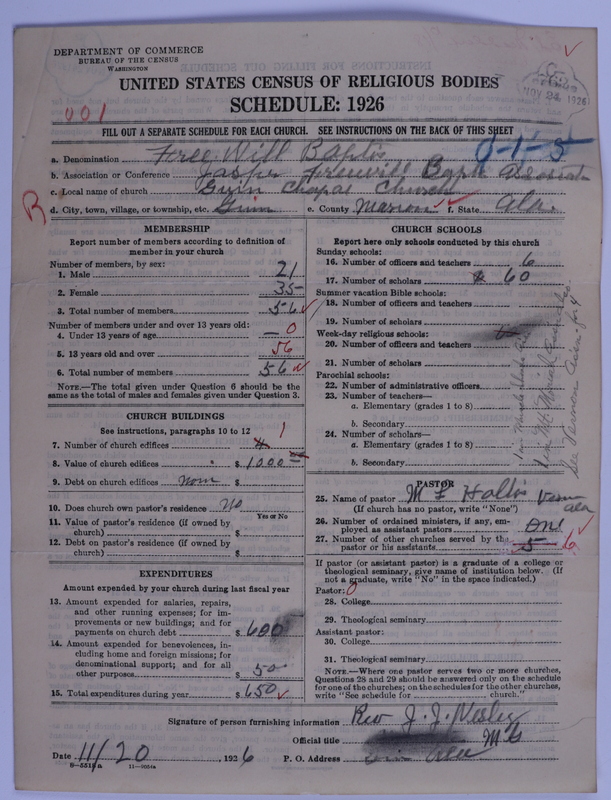 DEPARTMENT OF COMMERCE
BUREAU OF THE CENSUS
WASHINGTON
UNITED STATES CENSUS OF RELIGIOUS BODIES
SCHEDULE: 1926
NOV 23 1926
001
FILL OUT A SEPARATE SCHEDULE FOR EACH CHURCH. SEE INSTRUCTIONS ON THE BACK OF THIS SHEET
a. Denomination Free Will Baptis 0-1-5
b. Association or Conference Jasper Freewill Bapt Associat
c. Local name of church Guin Chapal Church
R d. City, town, village, or township, etc. Guin e. County Marion f. State Ala.
MEMBERSHIP
Report number of members according to definition of member in your church
Number of members, by sex:
1. Male 21
2. Female 35
3. Total number of members 56
Number of members under and over 13 years old:
4. Under 13 years of age — 0
5. 13 years old and over 56
6. Total number of members 56
NOTE.—The total given under Question 6 should be the same as the total of males and females given under Question 3.
CHURCH BUILDINGS
See instructions, paragraphs 10 to 12
7. Number of church edifices 1
8. Value of church edifices $ 1000
9. Debt on church edifices none $
10. Does church own pastor's residence No
Yes or No
11. Value of pastor's residence (if owned by church) $
12. Debt on pastor's residence (if owned by church) $
EXPENDITURES
Amount expended by your church during last fiscal year
13. Amount expended for salaries, repairs, and other running expenses; for improvements or new buildings; and for payments on church debt $ 600
14. Amount expended for benevolences, including home and foreign missions; for denominational support; and for all other purposes $ 50
15. Total expenditures during year $ 650
CHURCH SCHOOLS
Report here only schools conducted by this church
Sunday schools:
16. Number of officers and teachers 6
17. Number of scholars 60
Summer vacation Bible schools:
18. Number of officers and teachers
19. Number of scholars
Week-day religious schools:
20. Number of officers and teachers
21. Number of scholars
Parochial schools:
22. Number of administrative officers
23. Number of teachers—
a. Elementary (grades 1 to 8)
b. Secondary
24. Number of scholars—
a. Elementary (grades 1 to 8)
b. Secondary
PASTOR
25. Name of pastor M F Hallis Ala
(If church has no pastor, write "None")
26. Number of ordained ministers, if any, employed as assistant pastors one
27. Number of other churches served by the pastor or his assistants 5 6
If pastor (or assistant pastor) is a graduate of a college or theological seminary, give name of institution below. (If not a graduate, write "No" in the space indicated.)
Pastor: 0
28. College
29. Theological seminary
Assistant pastor:
30. College
31. Theological seminary
NOTE.—Where one pastor serves two or more churches, Questions 28 and 29 should be answered only on the schedule for one of the churches; on the schedules for the other churches, write "See schedule for church."
Signature of person furnishing information Rev J. J. Nesley
Official title M G
Date 11/20, 1926 P. O. Address Ala
8-5518a 11-9054a